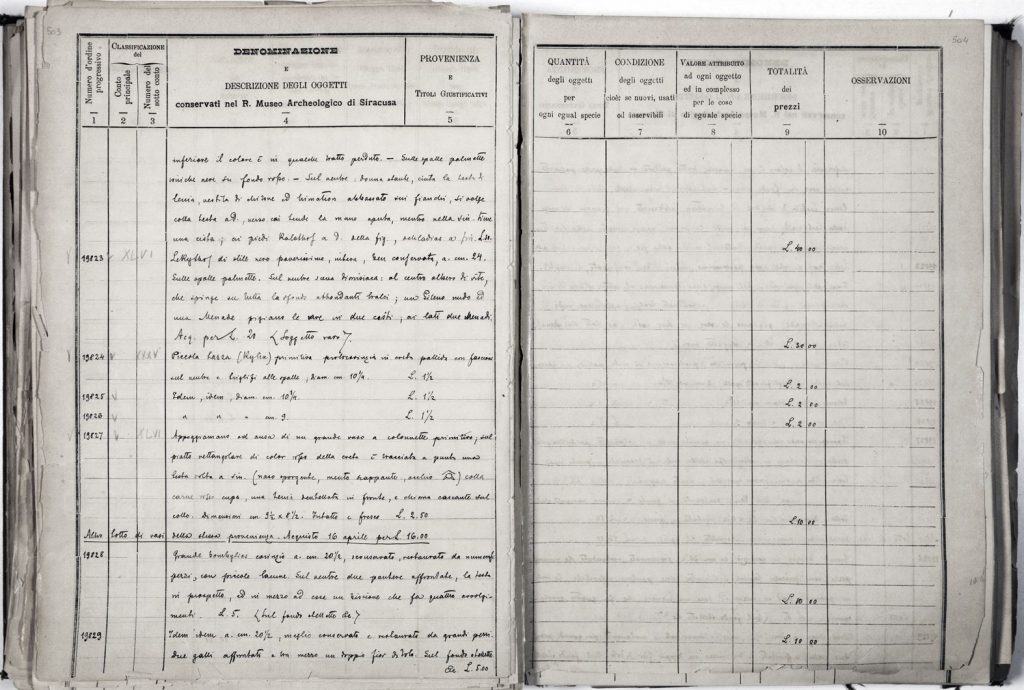 503
Numero d'ordine progressivo
CLASSIFICAZIONE del
Conto principale
Numero del sotto conto
DENOMINAZIONE
E
DESCRIZIONE DEGLI OGGETTI
conservati nel R. Museo Archeologico di Siracusa
PROVENIENZA
E
TITOLI GIUSTIFICATIVI
1 2 3 4 5
inferiore il colore è in qualche tratto perduto. – Sulle spalle palmette
ioniche nere su fondo rosso. – Sul ventre: donna stante, cinta la testa di
tenia, vestita di chitone ed himation abbassato sui fianchi, si volge
colla testa a d., verso cui tende la mano aperta, mentre nella sin. tiene
una cista; ai piedi Kalathos a d. della fig.,
19823 XLVI Lekythos di stile nero poverissimo, intera, ben conservata, a. cm. 24.
Sulle spalle palmette. Sul ventre scena dionisiaca: al centro albero di vite,
che spinge su tutta la sfondo abbondanti tralci; un Sileno nudo ed
una Menade ai lati due Menadi.
Acq. per L. 20 (Soggetto raro).
19824 XXXV Piccola tazza (Kylix) primitiva protocorinzia in creta pallida con fascioni
sul ventre e triglifi alle spalle, diam. cm. 10¼. L. 1½
19825 Idem, idem, diam. cm. 10¼ L. 1½
19826 " " " cm. 9. L. 1½
19827 XLVI Appoggiamano ad ansa di un grande vaso a colonnette primitivo; sul
piatto rettangolare di color rosso della creta è tracciata a punta una
testa volta a sin. (naso sporgente, mento scappante, occhio) colla
carne rosso cupa, una tenia dentellata in fronte, e chioma cascante sul
collo. Dimensioni cm. 9½ x 8½. Intatto e fresco L. 2.50
Altro lotto di vasi della stessa provenienza. Acquisto 16 aprile per L. 16.00
19828 Grande bombylios corinzio a. cm. 20½, sconservato, restaurato da numerosi
pezzi, con piccole lacune. Sul ventre due pantere affrontate, la testa
in prospetto, ed in mezzo ad esse un che fa quattro avvolgi-
menti. L. 5. (Sul fondo
19829 Idem idem a. cm. 20½, meglio conservato e restaurato da grandi pezzi.
Due galli affrontati e con mezzo un doppio fior di loto. Sul fondo
L. 5.00
504
QUANTITÀ
degli oggetti
per
ogni egual specie
CONDIZIONE
degli oggetti
cioè: se nuovi, usati
od inservibili
VALORE ATTRIBUITO
ad ogni oggetto
ed in complesso
per le cose
di eguale specie
TOTALITÀ
dei
prezzi
OSSERVAZIONI
6 7 8 9 10
L. 40 00
L. 30 00
L. 2 00
L. 2 00
L. 2 00
L. 10 00
L. 10 00
L. 10 00